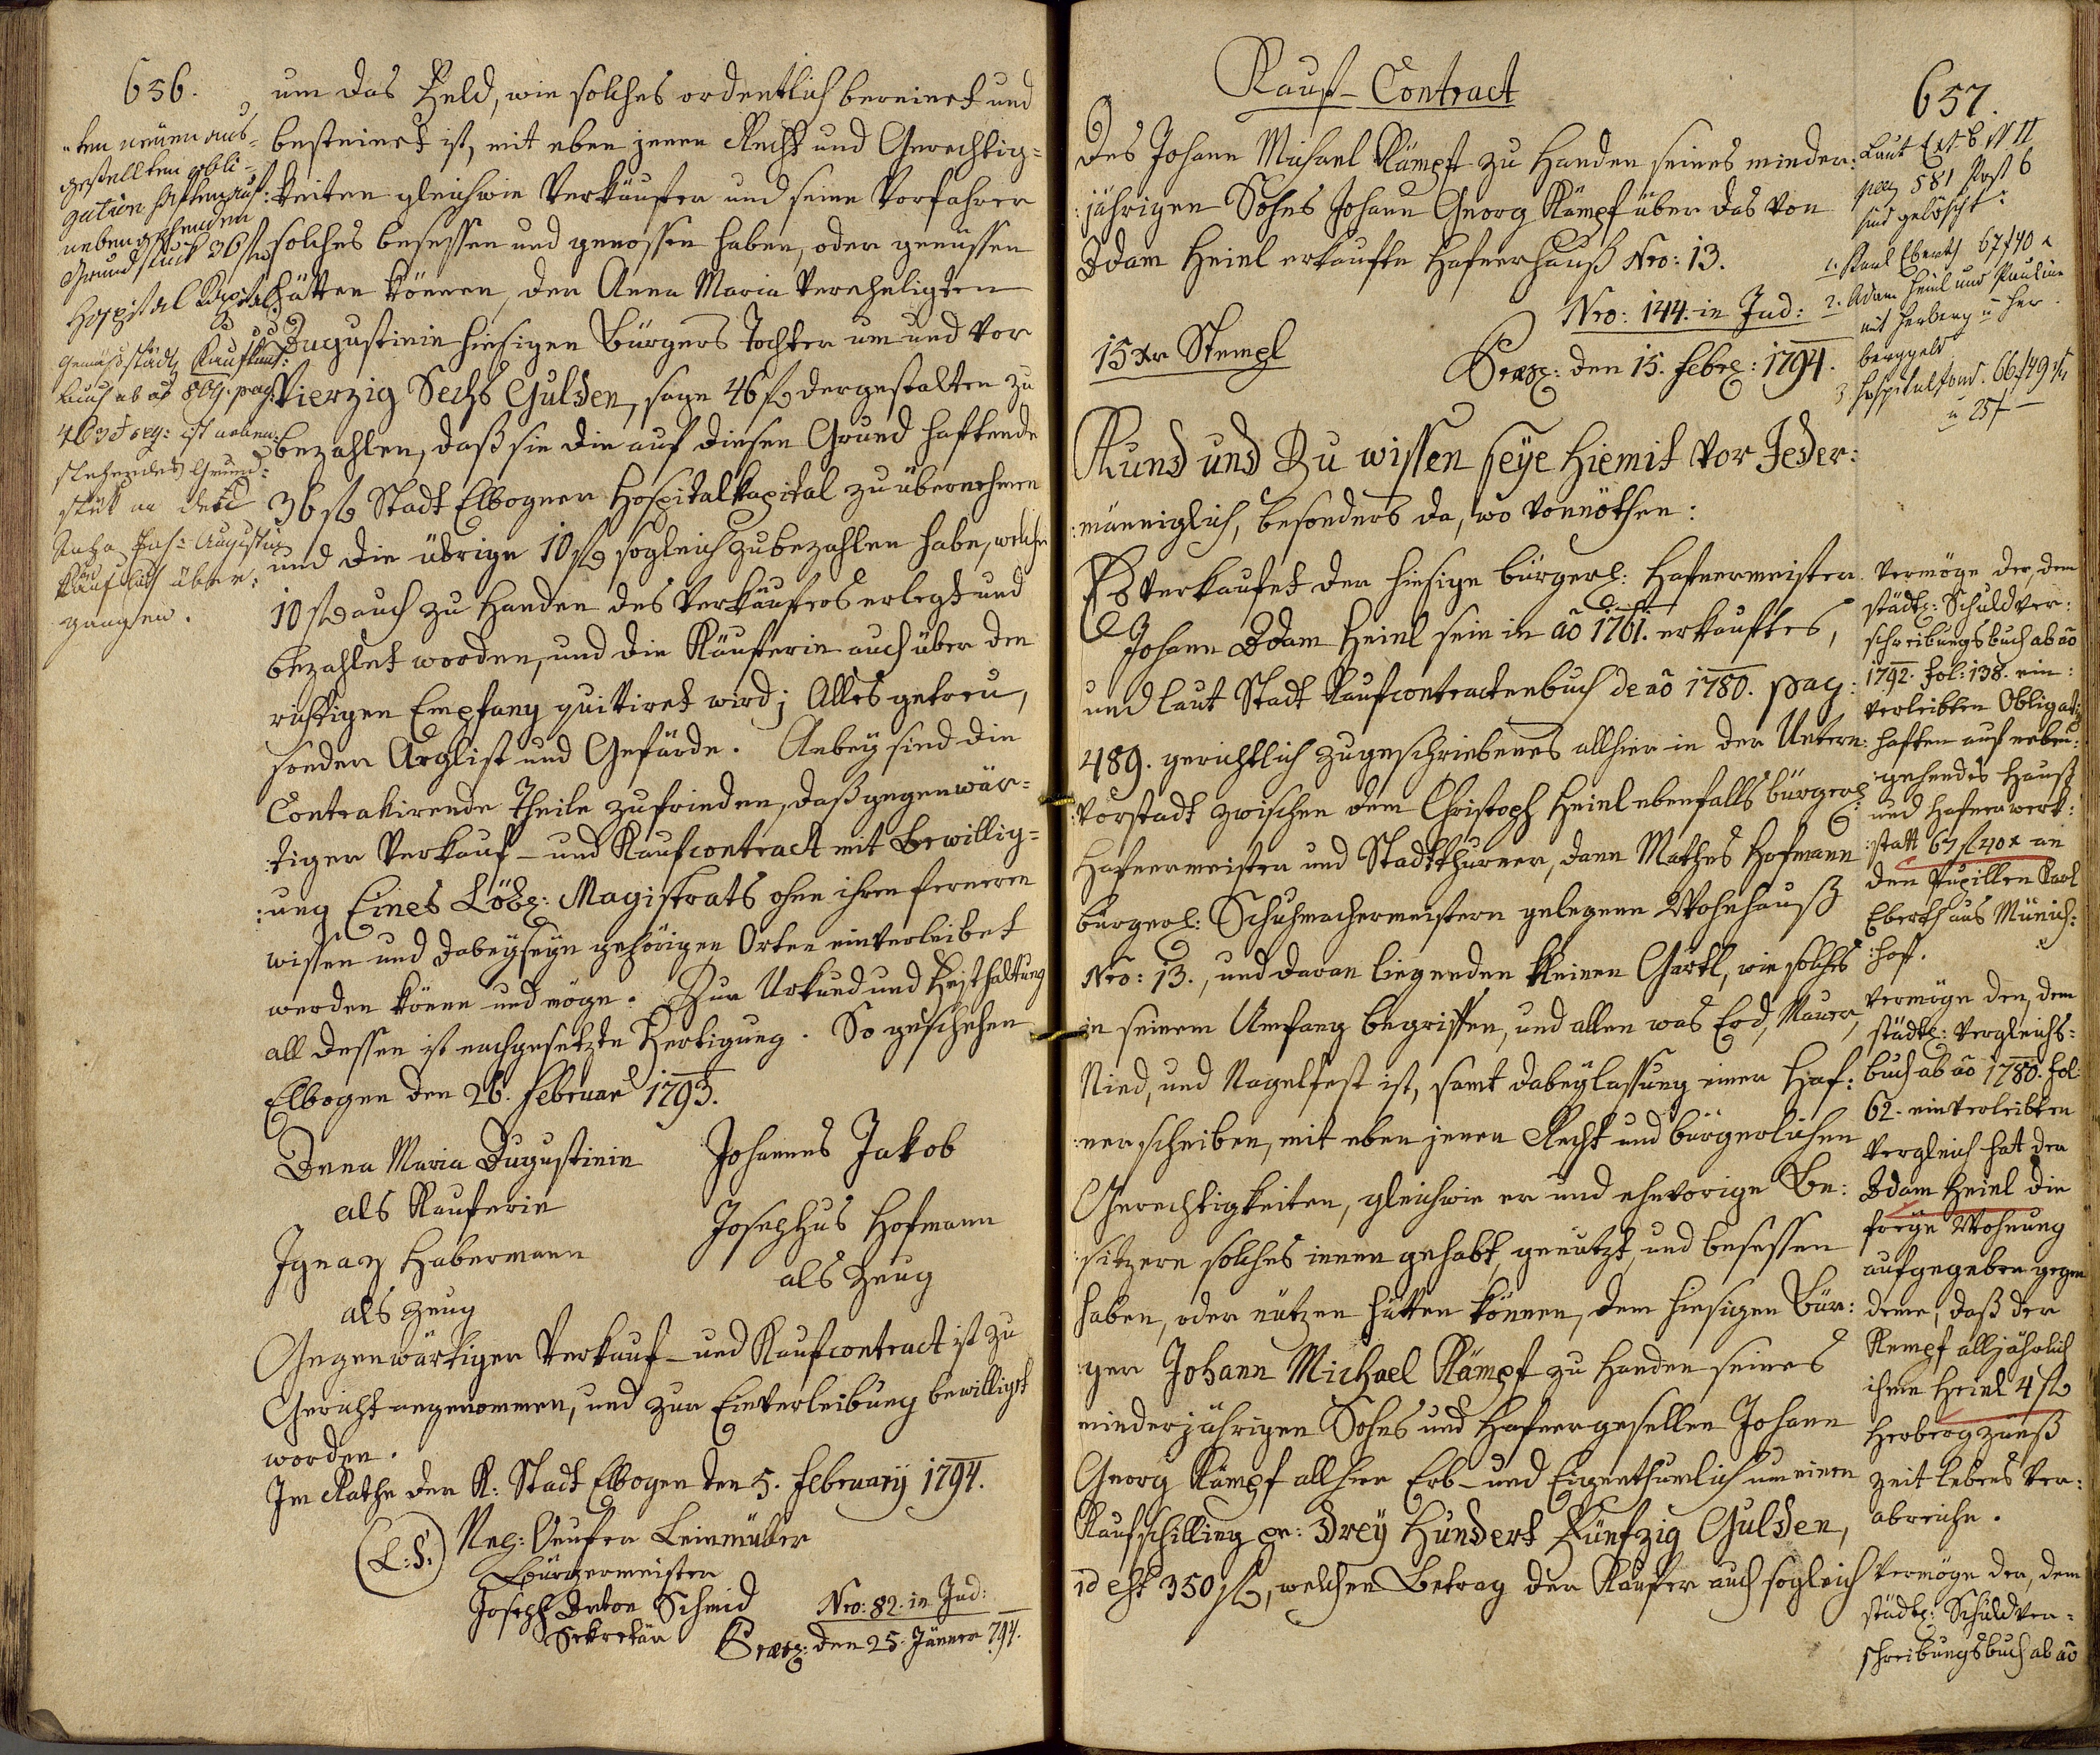 656.
um das Feld, wie solches ordentlich bereinet und
besteinet ist, mit eben jenen Recht und Gerechtig=
:keiten gleichwie Verkäufer und seine Vorfahrer
solches besessen und genossen haben, oder genüssen
hätten können, der Anna Maria verehligten
Augustinin hiesigen Bürgers Tochter um und vor
Vierzig Sechs Gulden, sage 46 f dergestalten zu
bezahlen, daß sie die auf diesen Grund haftende
36 f Stadt Elbogner Hospitalkapital zu übernehmen
und die übrige 10 f sogleich zubezahlen habe, welche
10 f auch zu Handen des Verkäufers erlegt und
bezahlet worden, und die Käuferin auch über den
richtigen Empfang quittiret wird; Alles getreu,
sonder Arglist und Gefärde. Anbey sind die
Contrakirende Theile zufrieden, daß gegenwär=
:tiger Verkauf- und Kaufcontract mit Bewillig=
:ung Eines Löbl: Magistrats ohne ihren ferneren
wissen und dabeyseyn gehörigen Orten einverleibet
werden könne und möge. Zur Urkund und Festhaltung
all dessen ist nachgesetzte Fertigung. So geschehen
Elbogen den 26. Februar 1793.
Anna Maria Augustinin
als Kauferin
Ignaz Habermann
als Zeug
Johannes Jakob
Josephus Hofmann
als Zeug
Gegenwärtiger Verkauf- und Kaufcontract ist zu
Gericht angenommen, und zur Einverleibung bewilligt
worden.
Im Rathe der K: Stadt Elbogen den 5. February 1794.
(L:S:)
Leinmüller
Bürgermeister
Joseph Anton Schmid
Sekretär
Nro: 82. in Jud:
Praes: den 25. Jänner 794.
ten neuen aus=
gestellten obli=
gation haften auf
nebengehenden
Grundstück 36 f
Hospital Kapital
Gemäß städt: Kaufkont:
buch ab ao 804. pag:
463 et seq: ist neben:
stehendes Grund:
stük an den
Joh: Augustin
käuflich über:
gangen.
Kauf-Contract
657.
Des Johann Michael Kämpf zu Handen seines minder:
:jährigen Sohns Johann Georg Kämpf über das von
Adam Heinl erkaufte Hafnerhauß Nro: 13.
Nro: 144. in Jud:
15 xr Stempl
Praes: den 15. Febr: 1794.
Kund und Zu wissen seye hiemit vor Jeder:
:männiglich, besonders da, wo vonnöthen:
Es verkaufet der hiesige bürgerl: Hafnermeister
Johann Adam Heinl sein in ao 1761. erkauftes,
und laut Stadt Kaufcontractenbuch de ao 1780. pag:
489. gerichtlich zugeschriebenes allhier in der Untern
:vorstadt zwischen dem Christoph Heinl ebenfalls bürgerl:
Hafnermeister und Stadtthurner, dann Mathes Hofmann
bürgerl: Schuhmachermeistern gelegene Wohnhauß
Nro: 13., und daran liegenden kleinen Gärtl, wie solches
in seinem Umfang begriffen, und allen was Erd, Mauer,
Nied, und Nagelfest ist, samt dabeylassung einer Haf:
:nerscheiben, mit eben jenen Recht und bürgerlichen
Gerechtigkeiten, gleichwie er und ehevorige Be:
:sitzern solches innen gehabt, genützt, und besessen
haben, oder nützen hätten können, dem hiesigen Bür:
:ger Johann Michael Kämpf zu Handen seines
minderjährigen Sohns und Hafnergesellen Johann
Georg Kämpf allhier Erb- und Eigenthumlich um einen
Kaufschilling pr: Drey Hundert Fünfzig Gulden,
id est 350 f, welchen Betrag der Käufer auch sogleich
Laut Ext. B II
pag 581 Post 6
sind gelöscht:
1. Karl Eberth 67 f 40 x
2. Adam Heinl und Pauline
mit Herberg u Her
berggeld
3 Hospitalfond. 66 f 49
u 25 f —
Vermöge der, dem
städt: Schuldver:
schreibungsbuch ab ao
1792. fol: 138. ein:
verleibten Obligat:
haften auf neben:
:gehendes Hauß
und Hafnerwerk:
:statt 67 f 40 x an
den Pupillen Karl
Eberth aus Münich:
:hof.
Vermöge den, dem
städt: Vergleichs:
buch ab ao 1780. fol:
62. einverleibten
Vergleich hat der
Adam Heinl die
freye Wohnung
aufgegeben gegen
deme, daß der
Kempf alljährlich
ihme Heinl 4 f
Herbergzünß
zeit lebens ver:
abreiche.
Vermöge der, dem
städt: Schuldver=
schreibungsbuch ab ao